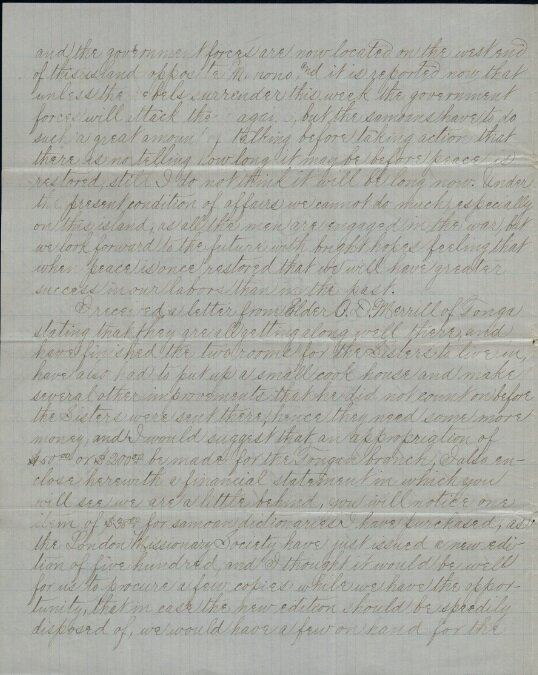 and the government forces are now located on the west end
of this island opposite Manono and it is reported now that
unless the rebels surrender this week the government
forces will attack them again, but the samoans have to do
such a great amount of talking before taking action that
there is no telling how long it may be before peace is
restored, still I do not think it will be long now. Under
the present condition of affairs we cannot do much especially
on this island, as all the men are engaged in the war but
we look forward to the future with bright hopes feeling that
when peace is once restored that we will have greater
success in our labors than in the past.
I received a letter from Elder O. D. Merrill of Tonga
stating that they are all getting along well there, and
have finished the two rooms for the Sisters to live in,
have also had to put up a small cook house and make
several other improvements that he did not count on before
the Sisters were sent there, hence they need some more
money, and I would suggest that an appropriation of
or $200.00 be made for the Tongan branch, I also en-
close herewith a financial statement in which you
will see we are a little behind, you will notice one
item of for samoan dictionaries I have purchased, as
the London Missionary Society have just issued a new edi-
tion of five hundred, and I thought it would be well
for us to procure a few copies while we have the oppor-
tunity, that in case the new edition should be speedily
disposed of, we would have a few on hand for the